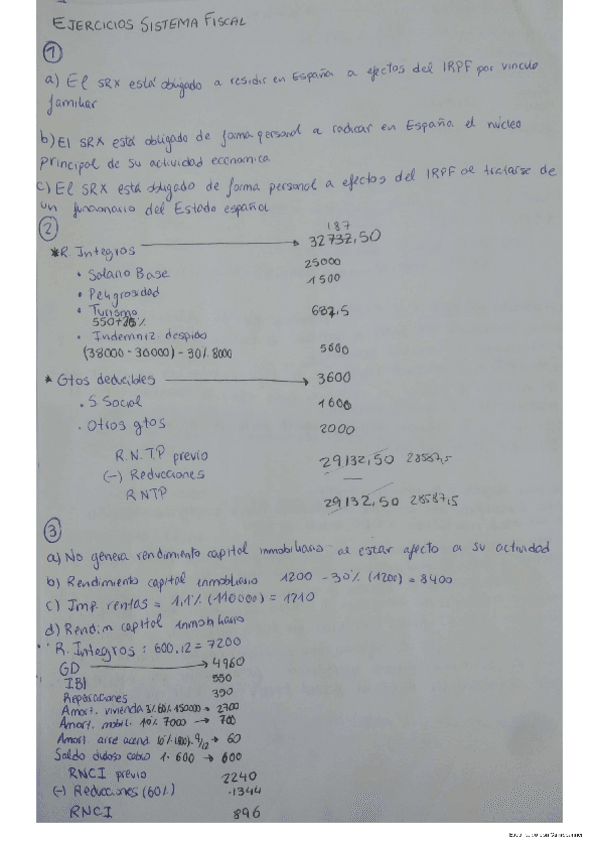 EJERCICIOS SISTEMA FISCAL
1
a) El SRX está obligado a residir en España a efectos del IRPF por vinculo
familiar
b) El SRX está obligado de forma personal a radicar en España el núcleo
principal de su actividad economica
c) El SRX está obligado de forma personal a efectos del IRPF al tratarse de
un funcionario del Estado español
2
* R. Integros → 32732,50 187
• Salario Base 25000
• Peligrosidad 1500
• Turismo 687,5
550+25%
• Indemniz despido
(38000 - 30000) - 30% 8000 5600
* Gtos deducibles → 3600
. S Social 1600
. Otros gtos 2000
R.N.T.P previo 29132,50 28587,5
(-) Reducciones —
RNTP 29132,50 28587,5
3
a) No genera rendimiento capital inmobiliario al estar afecto a su actividad
b) Rendimiento capital inmobiliario 1200 - 30% (1200) = 8400
c) Imp. rentas = 1,1% (110000) = 1210
d) Rendim capital inmobiliario
R. Integros : 600.12 = 7200
GD → 4960
IBI 550
Reparaciones 350
Amort. vivienda 3%.60% 150000 → 2700
Amort. mobil. 10% 7000 → 700
Amort. aire acond. 10% (800). 9/12 → 60
Saldo dudoso cobro 1. 600 → 600
RNCI previo 2240
(-) Reducciones (60%) -1344
RNCI 896